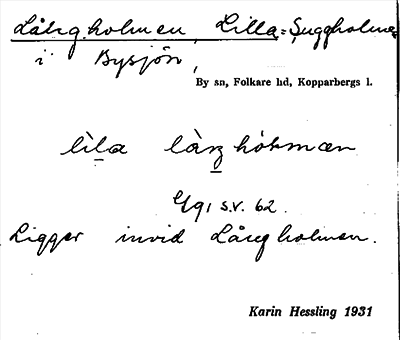 Långholmen, Lilla = Suggholmen
i Bysjön,
By sn, Folkare hd, Kopparbergs l.
lìla låŋhòlmæn
S.V. 62.
Ligger invid Långholmen.
Karin Hessling 1931